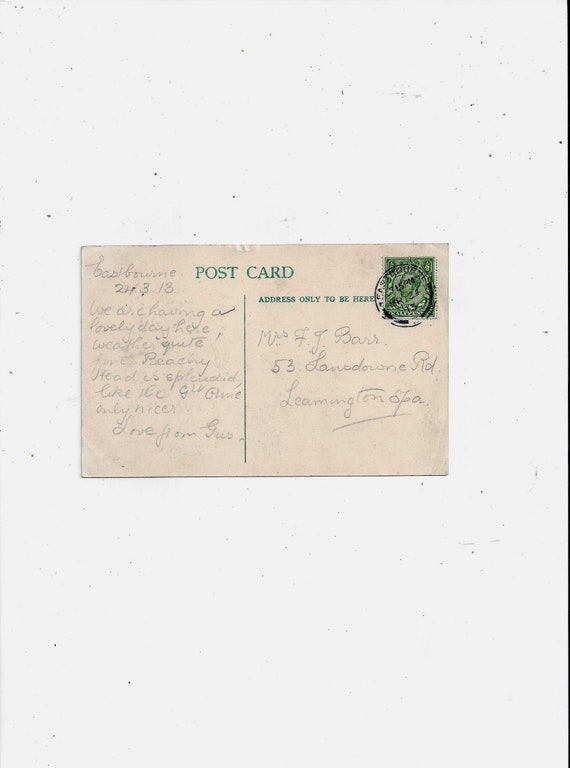 Eastbourne.
24.3.13.
We are having a
lovely day here,
weather quite
fine. Beachy
Head is splendid,
like the Gt Orme
only nicer
Love from Gus.
POST CARD
ADDRESS ONLY TO BE HERE
Mrs F. J. Barr.
53. Lansdowne Rd.
Leamington Spa.
EASTBOURNE
HALFPENNY